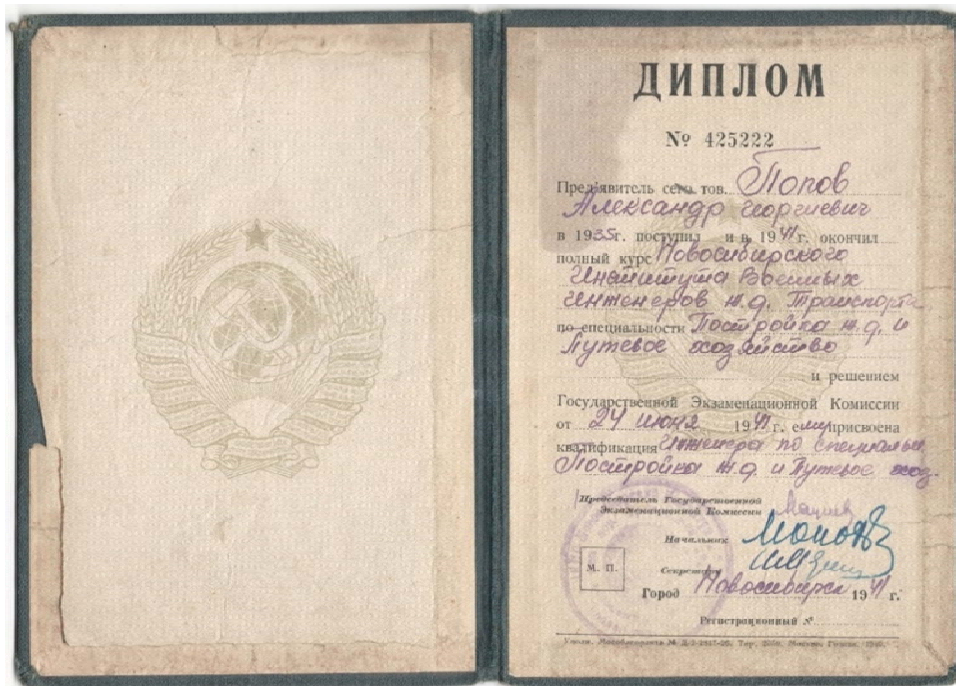 ДИПЛОМ
№ 425222
Пред'явитель сего тов. Попов
Александр Георгиевич
в 1935г. поступил и в 1941г. окончил
полный курс Новосибирского
Института Военных
Инженеров ж.д. Транспорта
по специальности Постройка ж.д. и
Путевое хозяйство
и решением
Государственной Экзаменационной Комиссии
от 24 июня 1941 г. ему присвоена
квалификация Инженера по специальн.
Постройка ж.д и Путевое хоз.
Председатель Государственной
Экзаменационной Комиссии
Начальник
М. П.
Секретарь
Город Новосибирск 1941 г.
Регистрационный №